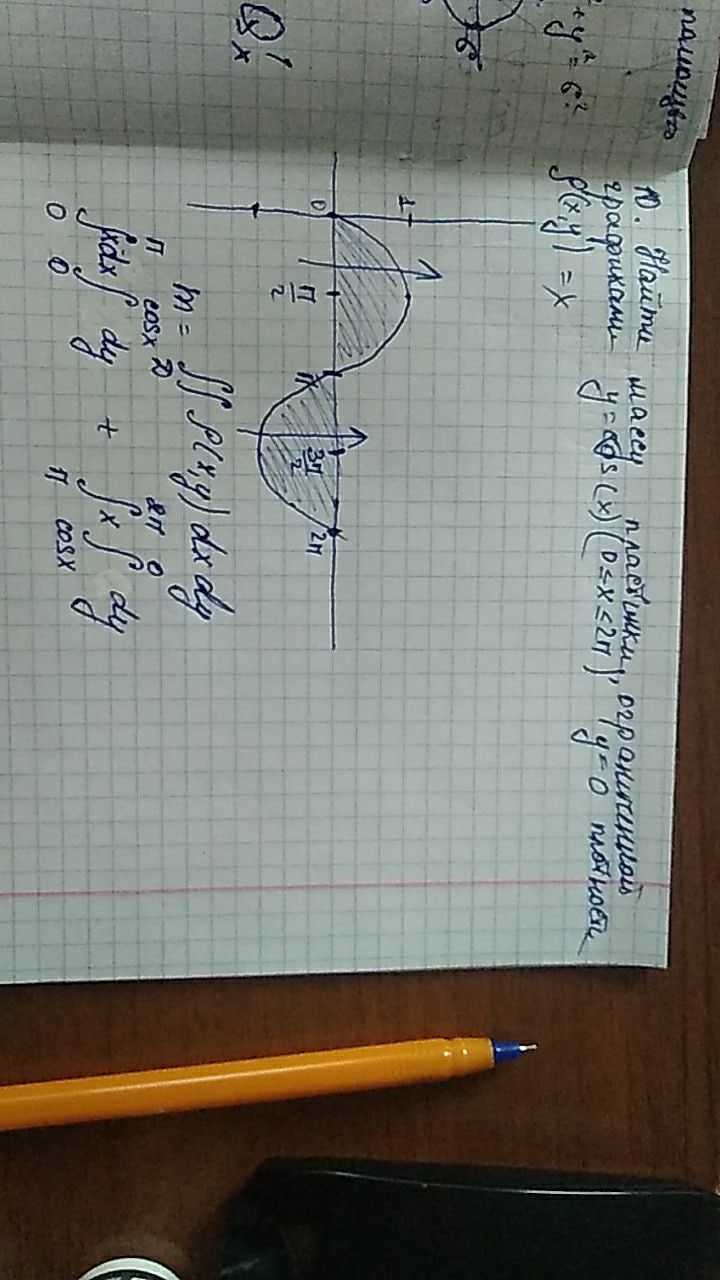 помощью
² + y² = 6²
6
10. Найти массу пластинки, ограниченной
графиками y = cos(x) (0 ≤ x ≤ 2π) y = 0 плотности
ρ(x, y) = x
1
0
π/2
π
3π/2
2π
m = ∫∫ ρ(x, y) dx dy
π cosx 2π 0
∫ x dx ∫ dy + ∫ x ∫ dy
0 0 π cosx